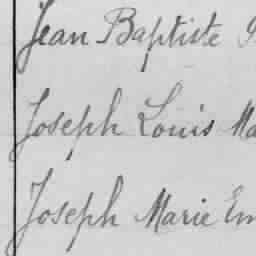 Jean Baptiste
Joseph Louis Ma
Joseph Marie Em